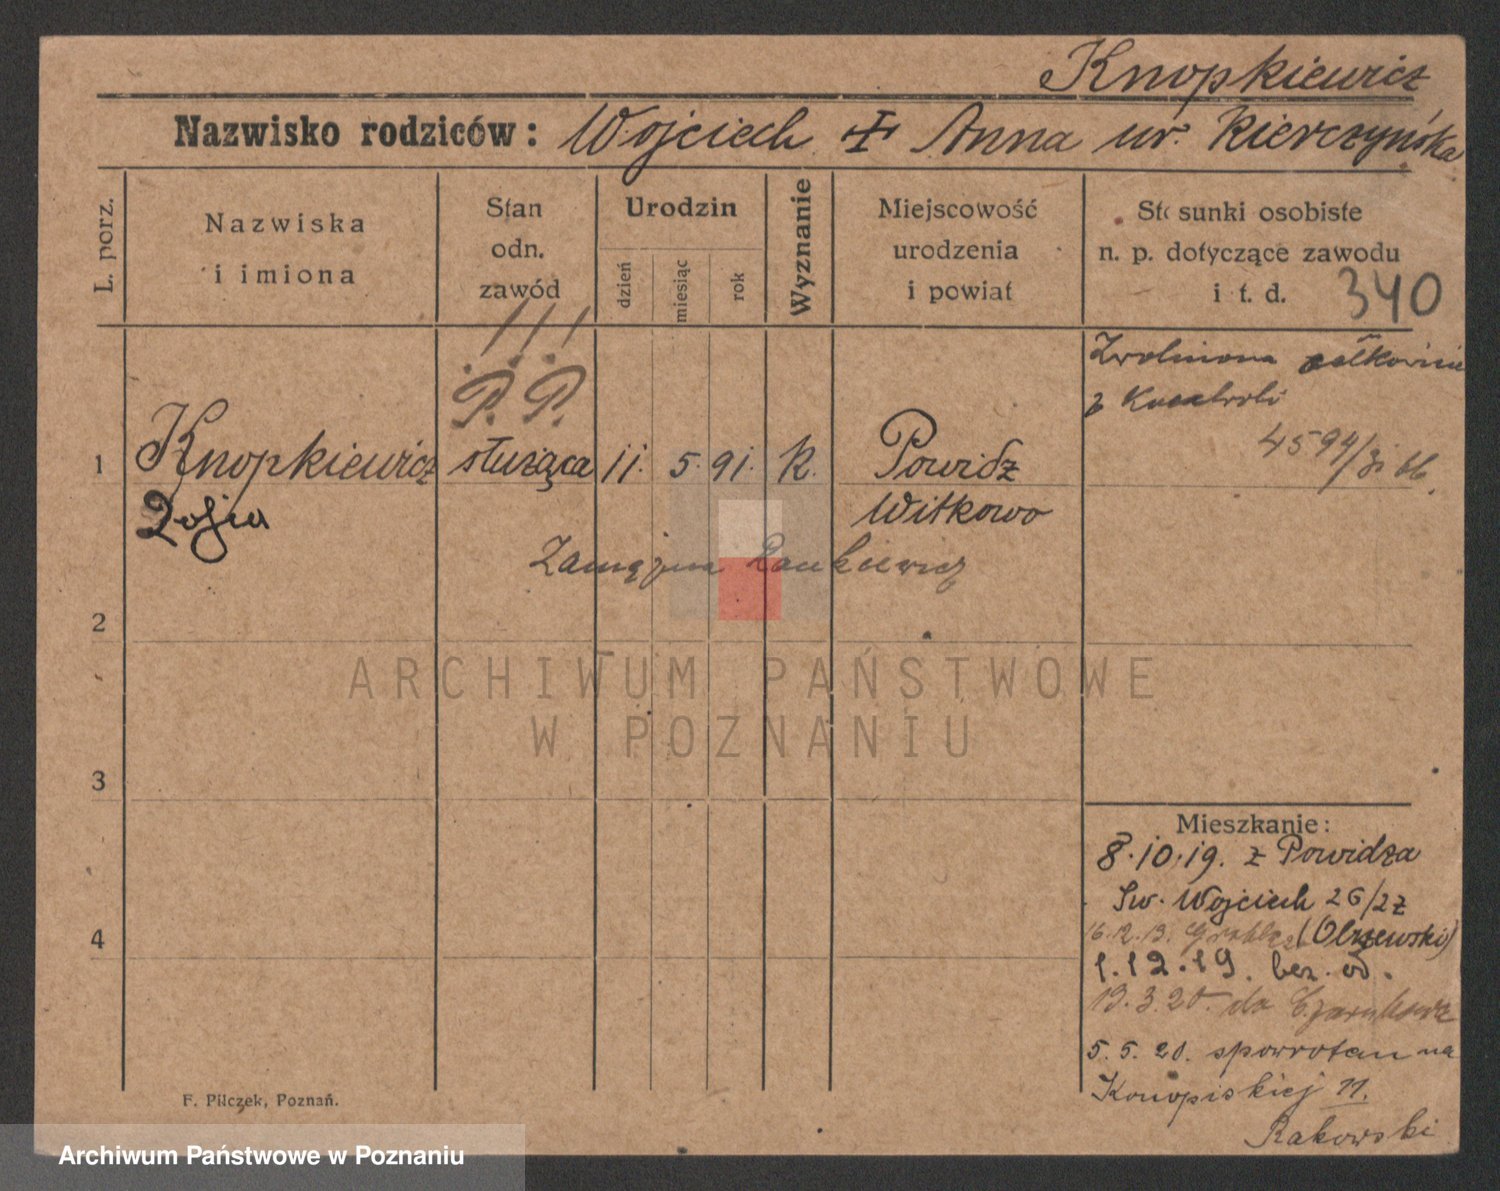 Knopkiewicz
Nazwisko rodziców: Wojciech Anna ur. Kierczyńska
L. porz.
Nazwiska
i imiona
Stan
odn.
zawód
Urodzin
dzień
miesiąc
rok
Wyznanie
Miejscowość
urodzenia
i powiat
Stosunki osobiste
n. p. dotyczące zawodu
i t. d.
340
Zwolniona całkowicie
z Kontroli
4594/31
P. P.
1
Knopkiewicz
Zofia
służąca
11. 5. 91. K.
Powidz
Witkowo
Zamężna
2
3
4
Mieszkanie:
8.10.19. z Powidza
Św. Wojciech 26/27
(Olszewski)
1.12.19. bez. od.
19.3.20. do
5.5.20. spowrotem na
Konopiskiej 11.
Rakowski
F. Pilczek, Poznań.
ARCHIWUM PAŃSTWOWE
W POZNANIU
Archiwum Państwowe w Poznaniu